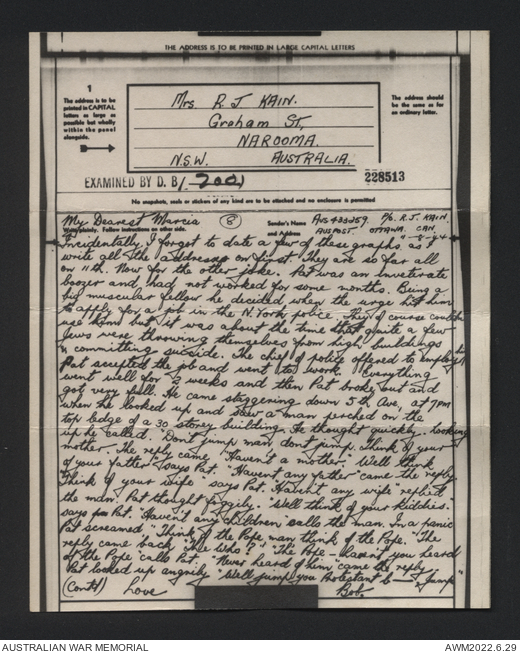 THE ADDRESS IS TO BE PRINTED IN LARGE CAPITAL LETTERS
1
The address is to be
printed in CAPITAL
letters as large as
possible but wholly
within the panel
alongside.
The address should
be the same as for
an ordinary letter.
Mrs. R J KAIN.
Graham St,
NAROOMA.
N.S.W. AUSTRALIA.
EXAMINED BY D. B/ 7001
228513
No snapshots, seals or stickers of any kind are to be attached and no enclosure is permitted
My Dearest Marcia (8) Sender's Name Aus 433259. P/O. R.J. KAIN.
Write plainly. Follow instructions on other side. and Address AUSPOST. OTTAWA. CAN.
Incidentally I forgot to date a few of these graphs, as I
write all the addresses on first. They are so far all
on 11th. Now for the other joke. Pat was an inveterate
boozer and had not worked for some months. Being a
big muscular fellow he decided when the urge hit him
to apply for a job in the N. York police. They of course couldn't
use him but it was about the time that quite a few
Jews were throwing themselves from high buildings
& committing suicide. The chief of police offered to employ him
Pat accepted the job and went to work. Everything
went well for 2 weeks and then Pat broke out and
got very full. He came staggering down 5th Ave, at 7 PM
when he looked up and saw a man perched on the
top ledge of a 30 storey building. He thought quickly. looking
up he called. "Don't jump man, don't jump. Think of your
mother. The reply came "Haven't a mother". "Well think
of your father" says Pat. "Haven't any father" came the reply.
"Think of your wife" says Pat. Haven't any wife replied
the man. Pat thought "Well think of your kiddies."
says Pat. "Haven't any children" calls the man. In a panic
Pat screamed "Think of the Pope man think of the Pope." The
reply came back "The who?" "The Pope – haven't you heard
of the Pope" calls Pat. "Never heard of him" came the reply.
Pat looked up angrily "Well jump you Protestant b—— Jump"
(Contd) Love Bob.
AUSTRALIAN WAR MEMORIAL AWM2022.6.29